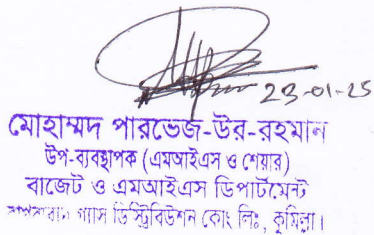 23-01-25
মোহাম্মদ পারভেজ-উর-রহমান
উপ-ব্যবস্থাপক (এমআইএস ও শেয়ার)
বাজেট ও এমআইএস ডিপার্টমেন্ট
গ্যাস ডিস্ট্রিবিউশন কোং লিঃ, কুমিল্লা।